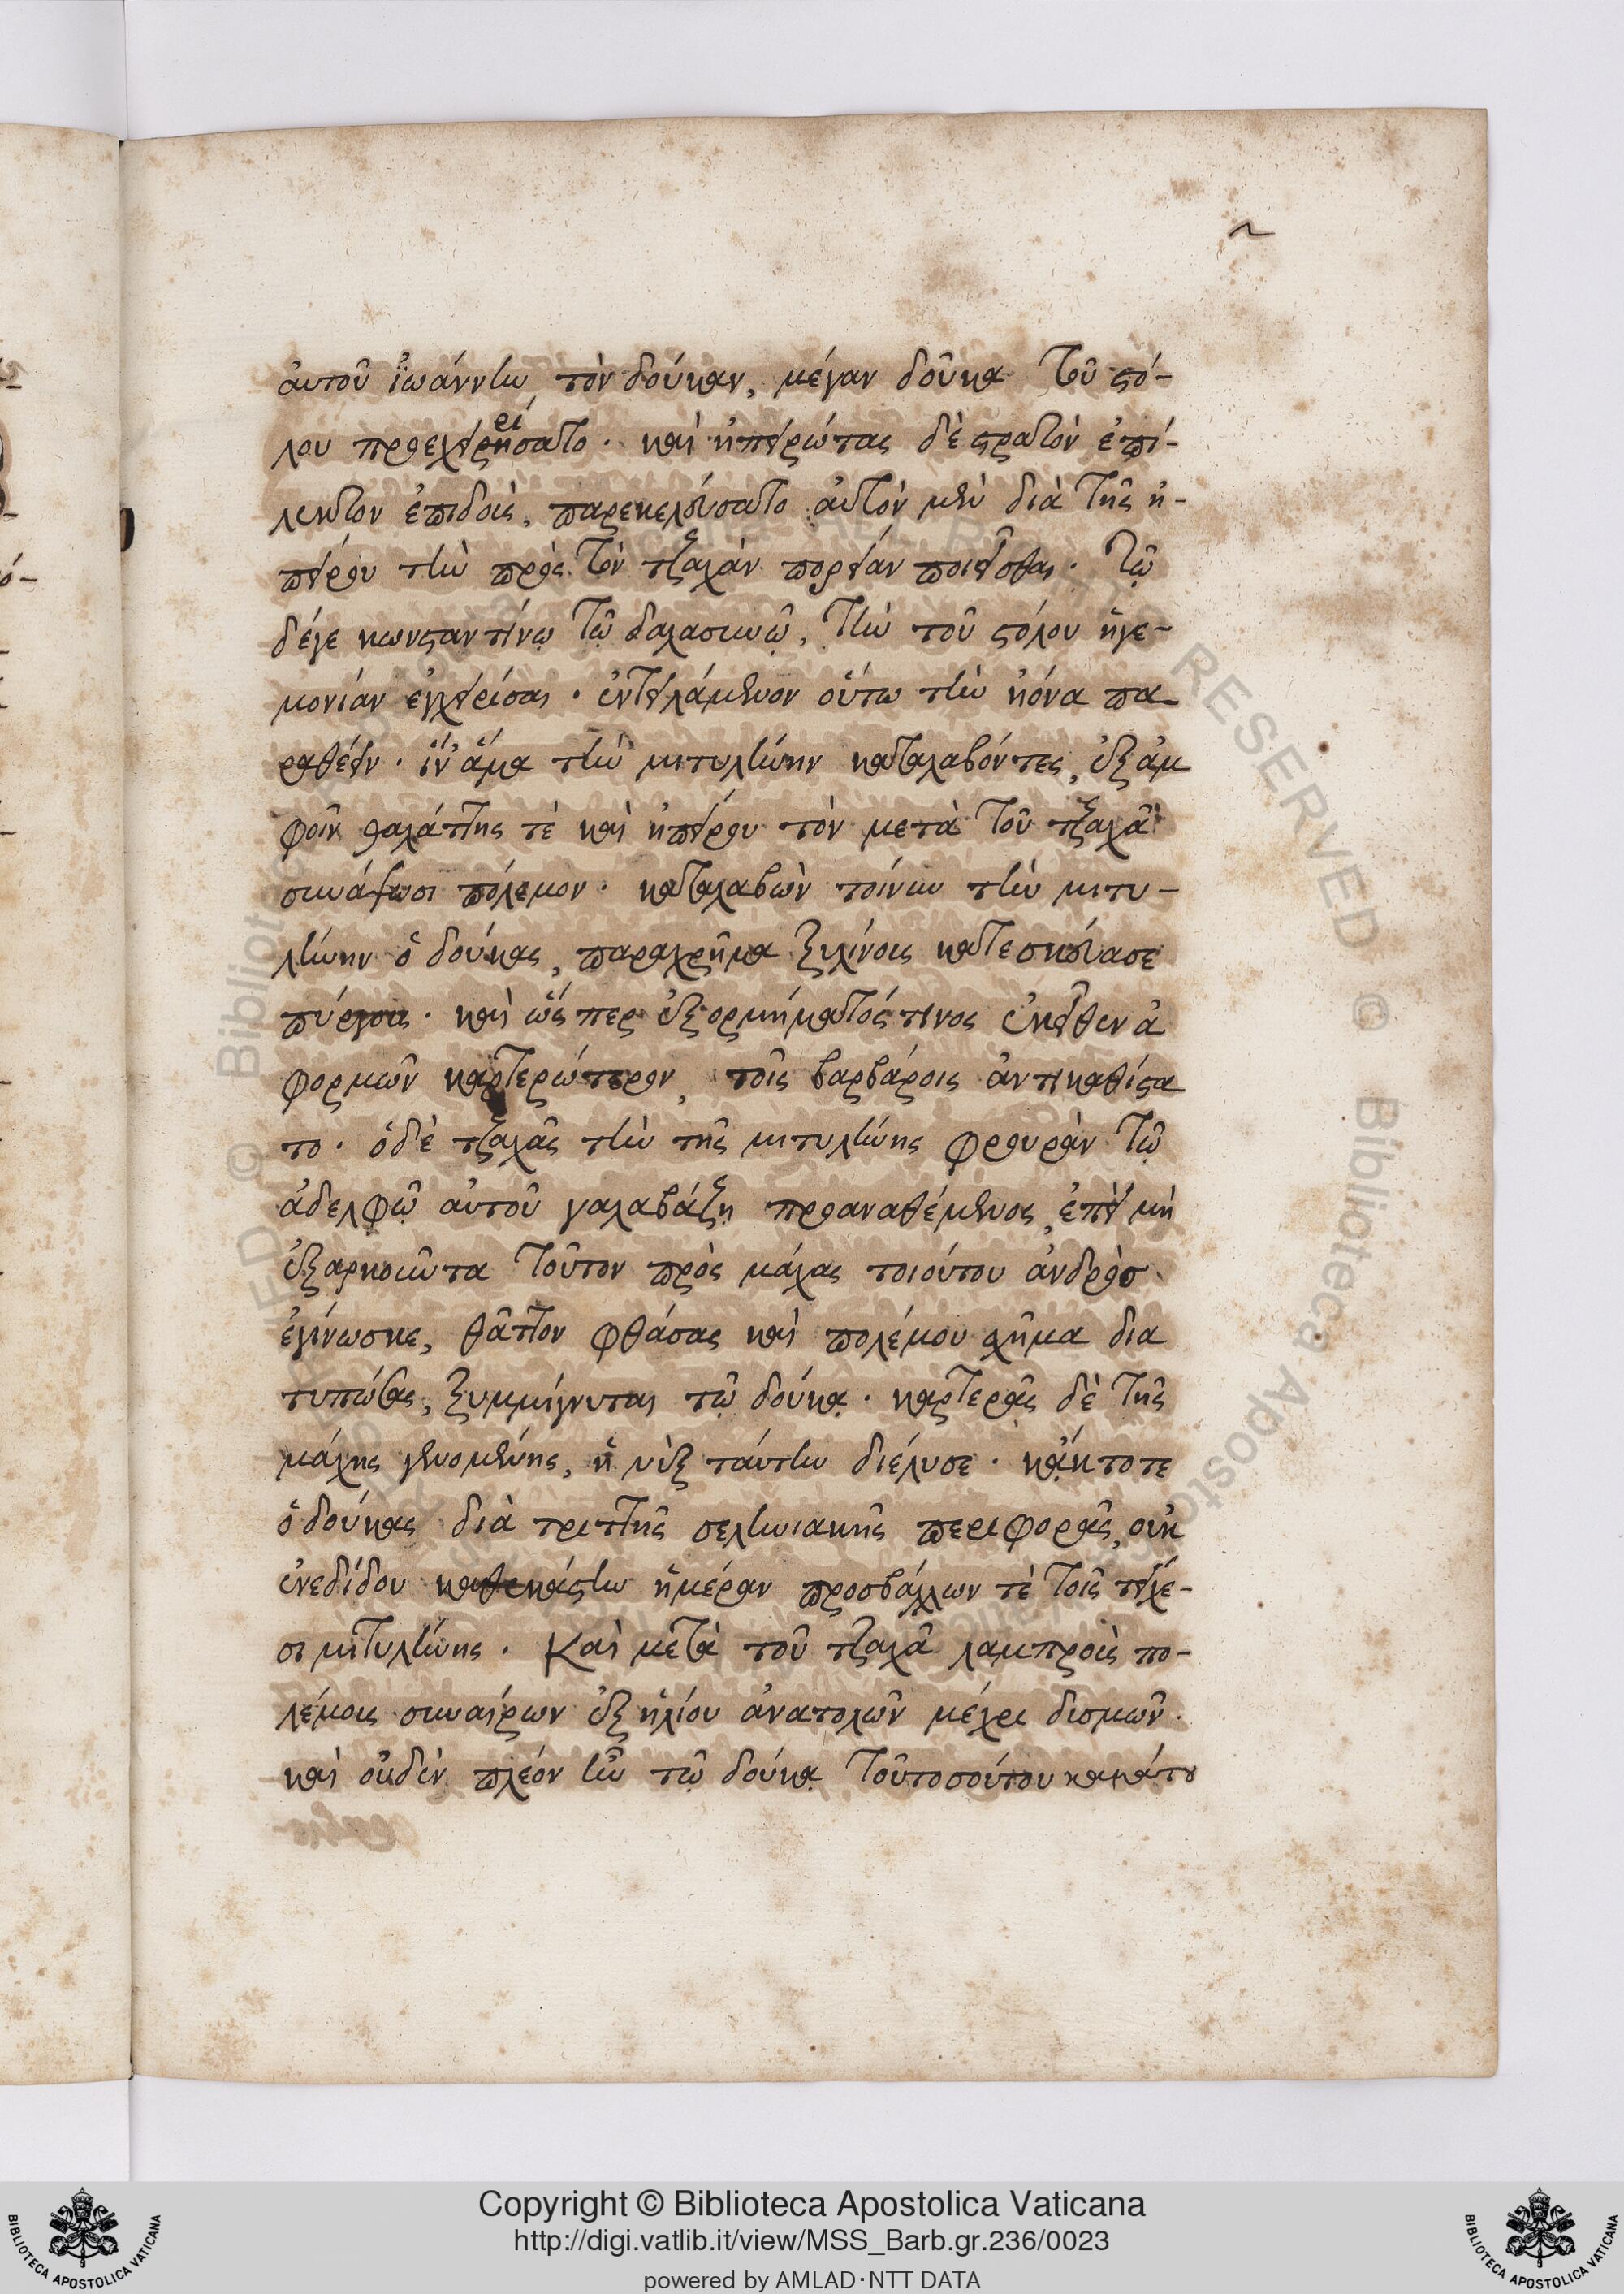 αὐτοῦ ἰωάννην τὸν δούκαν, μέγαν δοῦκα τοῦ στό-
λου προεχειρήσατο. καὶ ἠπειρώτας δὲ στρατὸν ἐπί-
λεκτον ἐπιδοὺς, παρεκελεύσατο αὐτὸν μὲν διὰ τῆς ἠ-
πείρου τὴν πρὸς τὸν τζαχὰν πορείαν ποιεῖσθαι. τῶ
δέγε κωνσταντίνῳ τῷ δαλασινῷ, τὴν τοῦ στόλου ἡγε-
μονίαν ἐγχειρίσαι. ἐντειλάμενον οὕτω τὴν ἠόνα πα
ραθέειν. ἵν' ἅμα τὴν μιτυλήνην καταλαβόντες, ἐξ ἀμ
φοῖν θαλάττης τὲ καὶ ἠπείρου τὸν μετὰ τοῦ τζαχᾶ
συνάψωσι πόλεμον. καταλαβὼν τοίνυν τὴν μιτυ-
λήνην ὁ δούκας, παραχρῆμα ξυλίνους κατεσκεύασε
πύργους. καὶ ὥς περ ἐξ ορμήματός τινος ἐκεῖθεν ἀ
φορμῶν καρτερώτερον, τοῖς βαρβάροις ἀντικαθίστα
το. ὁδὲ τζαχᾶς τὴν τῆς μιτυλήνης φρουρὰν τῷ
ἀδελφῷ αὐτοῦ γαλαβάτζῃ προαναθέμενος, ἐπεὶ μὴ
ἐξαρκοῦντα τοῦτον πρὸς μάχας τοιούτου ἀνδρὸσ
ἐγίνωσκε, θᾶττον φθάσας καὶ πολέμου σχῆμα δια
τυπώσας, ξυμμίγνυται τῷ δούκᾳ. καρτερᾶς δὲ τῆς
μάχης γενομένης, ἡ νὺξ ταύτην διέλυσε. κᾀκτοτε
ὁ δούκας διὰ τριττῆς σεληνιακῆς περιφορᾶς, οὐκ
ἐνεδίδου καθεκάστην ἡμέραν προσβάλλων τὲ τοῖς τείχε-
σι μιτυλήνης. Καὶ μετὰ τοῦ τζαχᾶ λαμπροὺς πο-
λέμους συναίρων ἐξ ἡλίου ἀνατολῶν μέχρι δυσμῶν.
καὶ οὐδὲν πλέον ἦν τῷ δούκᾳ τοῦτοσούτου καμάτου